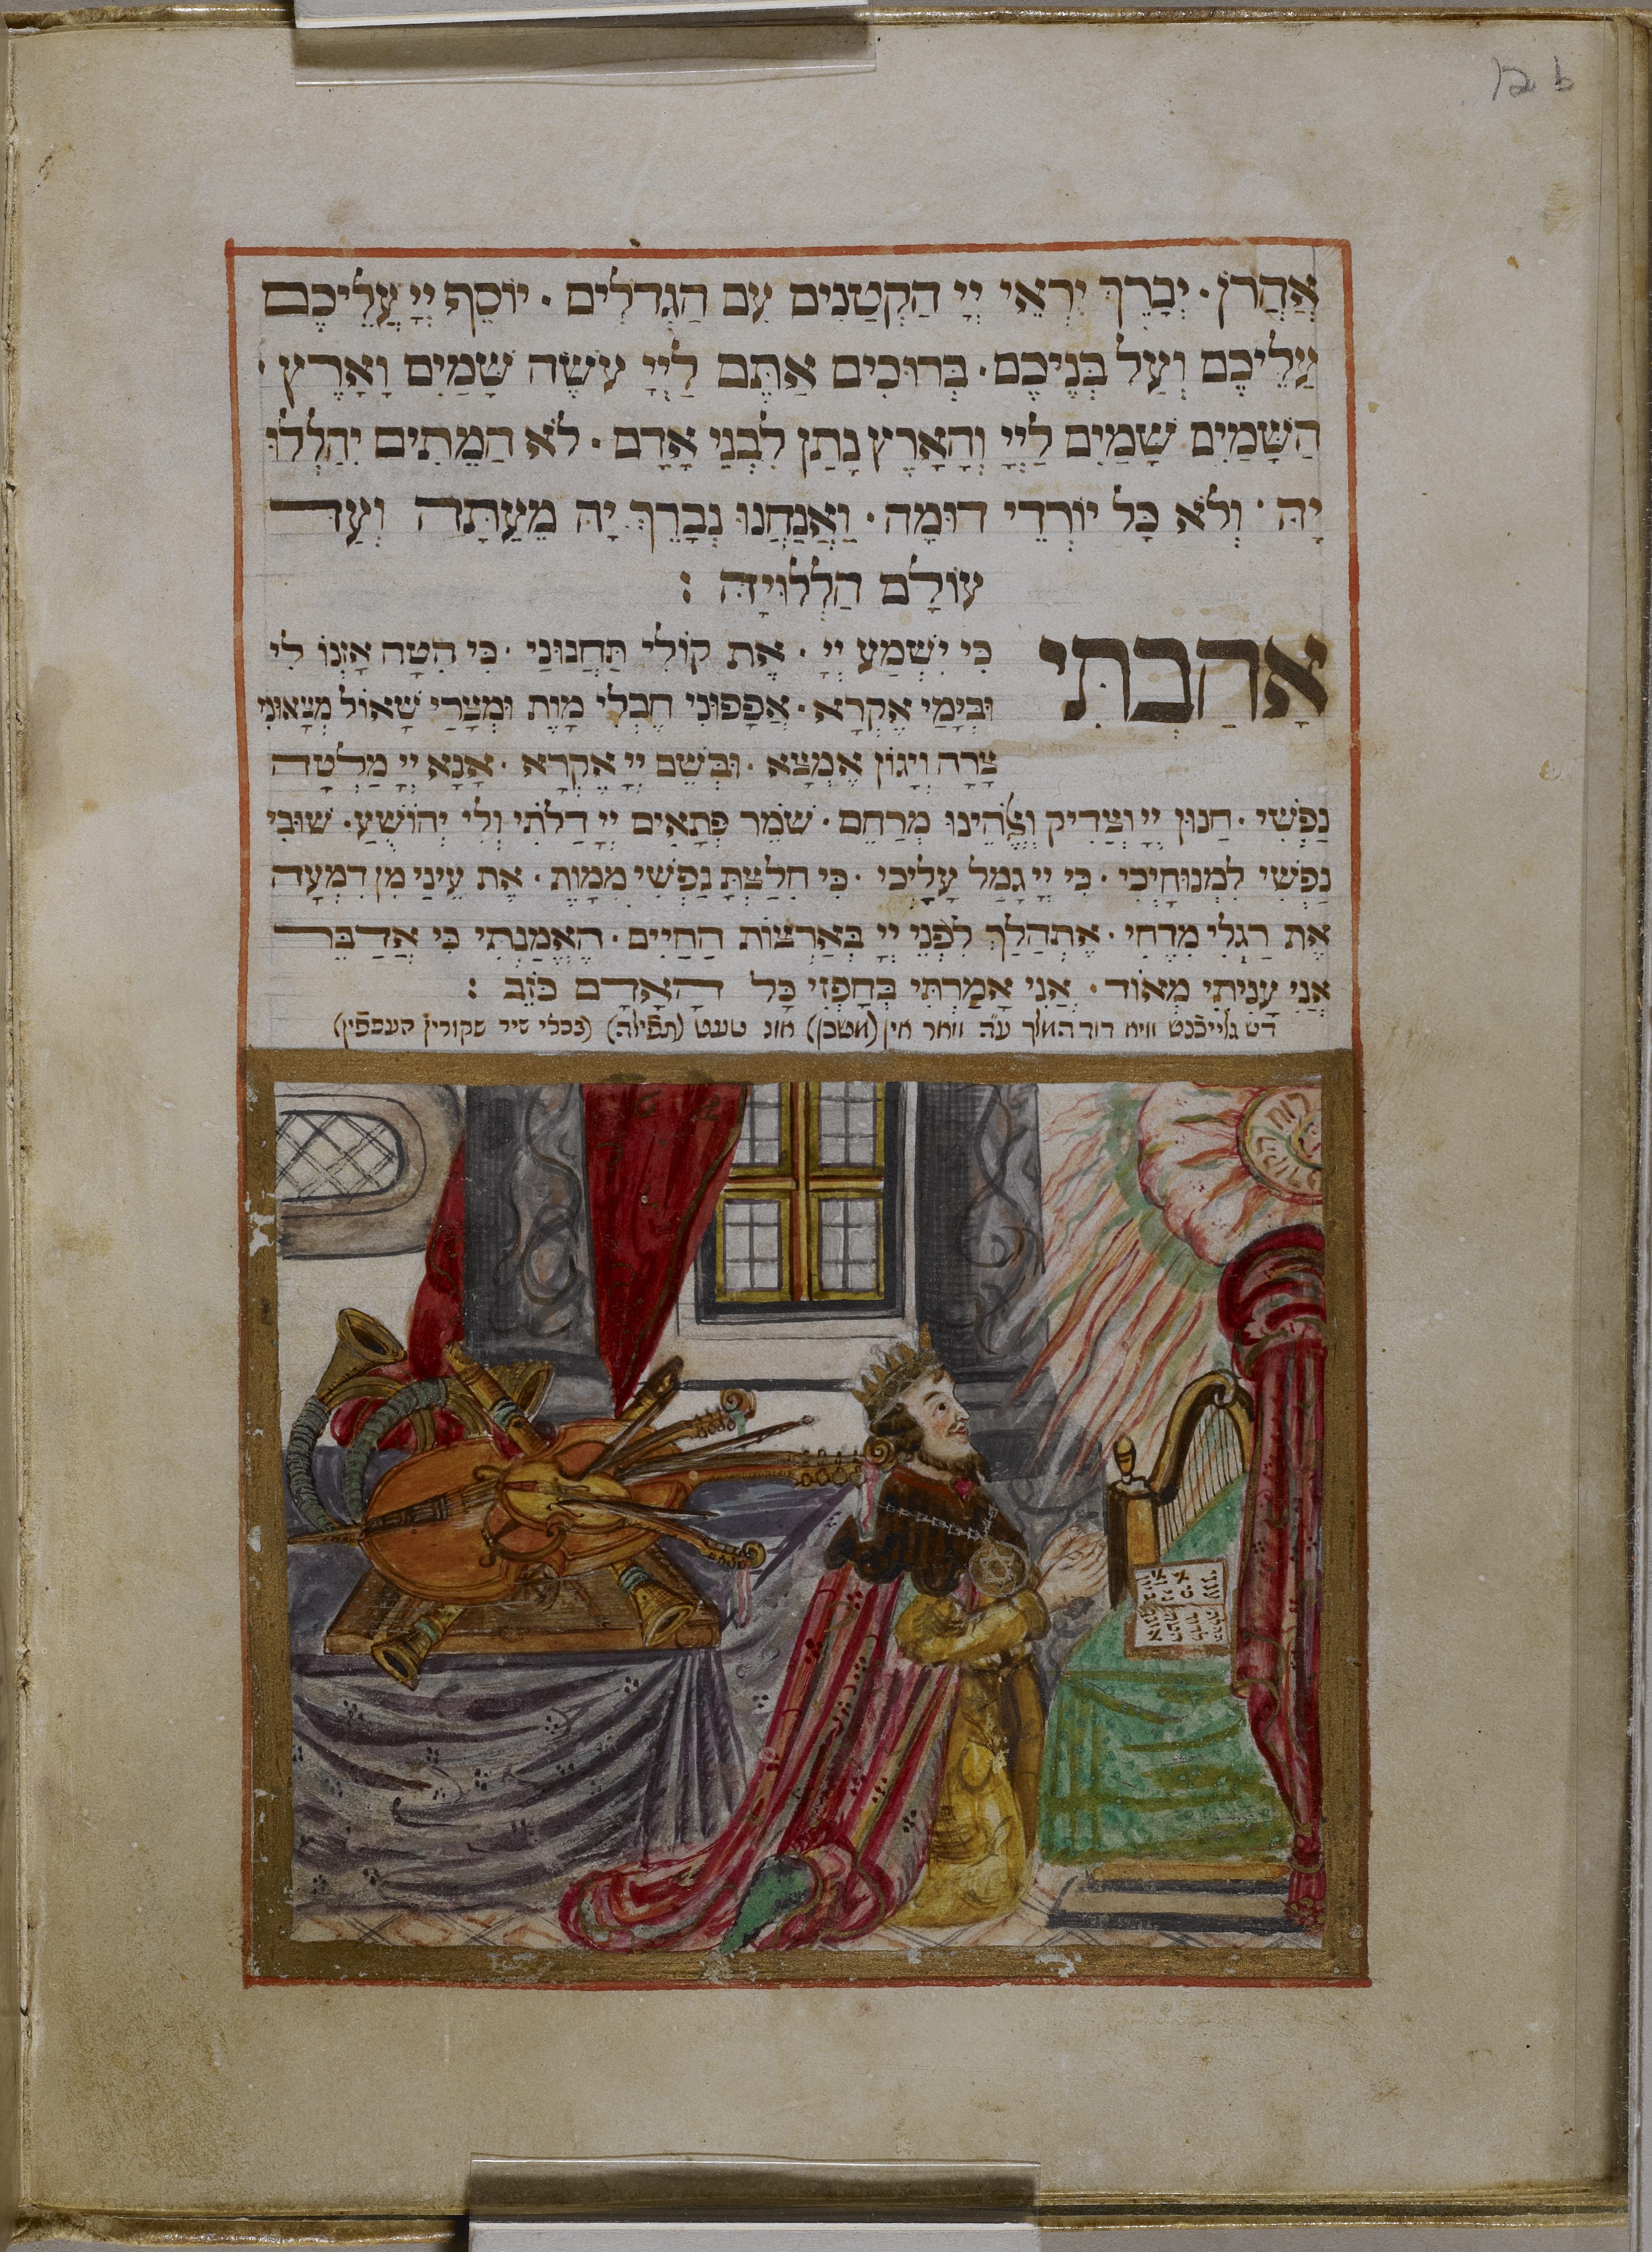 12b
אַהֲרֹן· יְבָרֵךְ יִרְאֵי יְיָ הַקְטַנִים עִם הַגְדֹלִים· יוֹסֵף יְיָ עֲלֵיכֶם
עֲלֵיכֶם וְעַל בְּנֵיכֶם· בְּרוּכִים אַתֶּם לַיְיָ עֹשֵׂה שָׁמַיִם וָאָרֶץ·
הַשָּׁמַיִם שָׁמַיִם לַיְיָ וְהָאָרֶץ נָתַן לִבְנֵי אָדָם· לֹא הַמֵּתִים יְהַלְלוּ
יָהּ· וְלֹא כָּל יוֹרְדֵי דוּמָה· וַאֲנַחְנוּ נְבָרֵךְ יָהּ מֵעַתָּה וְעַד
עוֹלָם הַלְלוּיָהּ:
אָהַבְתִּי כִּי יִשְׁמַע יְיָ· אֶת קוֹלִי תַּחֲנוּנַי· כִּי הִטָה אָזְנוֹ לִי
וּבְיָמַי אֶקְרָא· אֲפָפוּנִי חֶבְלֵי מָוֶת וּמְצָרֵי שָׁאוֹל מְצָאוּנִי
צָרָה וְיָגוֹן אֶמְצָא· וּבְשֵׁם יְיָ אֶקְרָא· אָנָא יְיָ מַלְטָה
נַפְשִׁי· חַנוּן יְיָ וְצַדִיק וֵאלֹהֵינוּ מְרַחֵם· שֹׁמֵר פְּתָאִים יְיָ דַלֹתִי וְלִי יְהוֹשִׁעַ· שׁוּבִי
נַפְשִׁי לִמְנוּחָיְכִי· כִּי יְיָ גָמַל עָלָיְכִי· כִּי חִלַצְתָּ נַפְשִׁי מִמָוֶת· אֶת עֵינַי מִן דִמְעָה
אֶת רַגְלִי מִדֶחִי· אֶתְהַלֵךְ לִפְנֵי יְיָ בְּאַרְצוֹת הַחַיִים· הֶאֱמַנְתִי כִּי אֲדַבֵּר
אֲנִי עָנִיתִי מְאוֹד· אֲנִי אָמַרְתִּי בְּחָפְזִי כָּל הָאָדָם כֹּזֵב:
דש גלייכֿנט וויא דוד המלך ע״ה וואר אין (משכן) אונ טעט (תפֿילה) (בכלי שיר